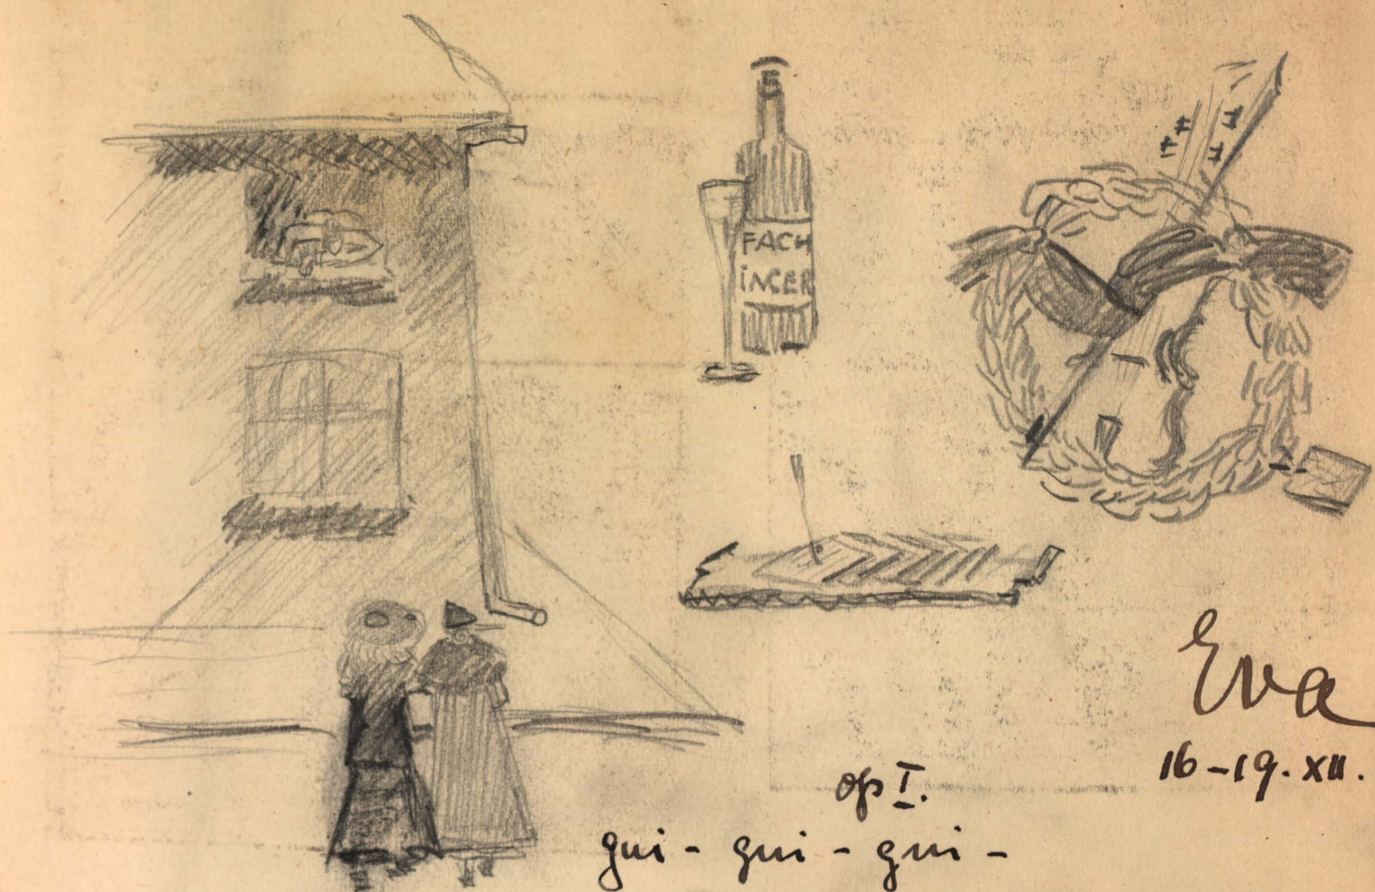 FACH
iNGER
Eva
16-19. XII.
op I.
gui - gui - gui -